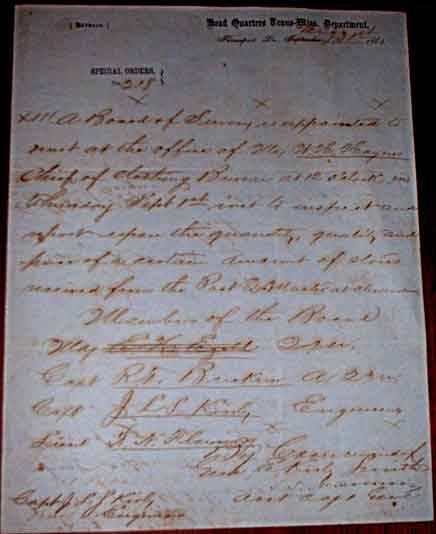 [ EXTRACT. ]
Head Quarters Trans-Miss. Department,
Shreveport La. 186
SPECIAL ORDERS,
No. 218
X X X
A Board of Survey is appointed to
meet at the office of Maj W. H. Haynes
Chief of Clothing Bureau at 12 o'clock
Thursday Sept 1st inst to inspect and
report upon the quantity, quality and
price of a certain amount of
received from the Post Q. Master at
Members of the Board
Maj Q.M.
Capt R. A.Q.M.
Capt J. L. S. Kirby Engineers
Lieut
By Command of
E. Kirby Smith
Capt J. L. S. Kirby
Engineers
Asst Adjt Genl